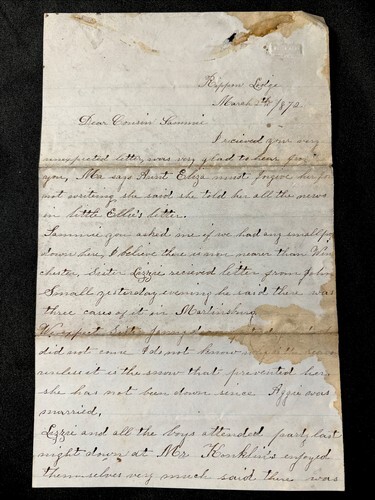 Rippon Lodge
March 5th 1872.
Dear Cousin Sammie
I recieved your very
unexpected letter, was very glad to hear from
you, Ma says Aunt Eliza must forgive her for
not writing, she said she told her all the news
in little Ellie's letter.
Sammie you asked me if we had any small pox
down here, I believe there is non nearer than Win
chester, Sister Lizzie recieved letter from John
Small yesterday evening he said there was
three cases of it in Martinsburg
We expect Sister down
did not come I do not know
unless it is the snow that prevented her
she has not been down since Aggie was
married.
Lizzie and all the boys attended party last
night down at Mr Konklin's enjoyed
themselves very much said there was